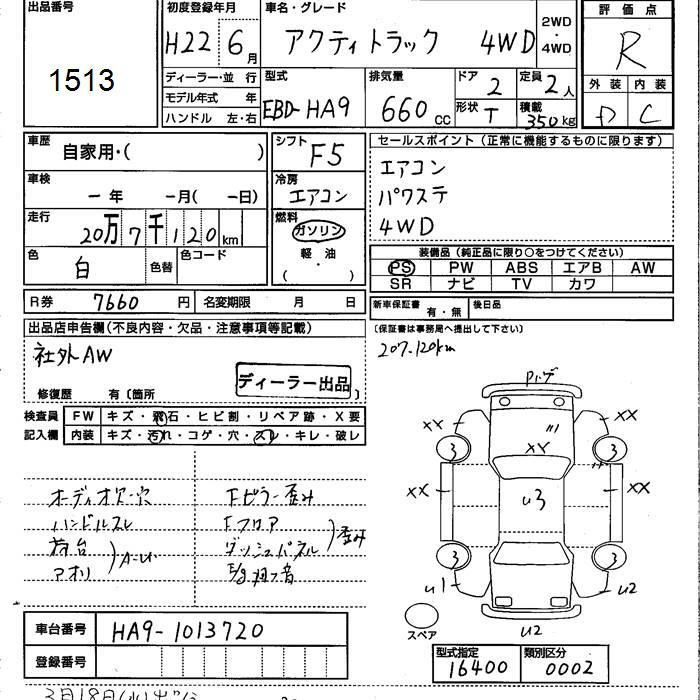 出品番号 1513
初度登録年月 H22 6月
車名・グレード アクティトラック 4WD 2WD・4WD
評価点 R
外装 D 内装 C
ディーラー・並行
モデル年式 年
ハンドル 左・右
型式 EBD-HA9
排気量 660cc
ドア 2
形状 T
定員 2人
積載 350kg
車歴 自家用・( )
シフト F5
車検 一年 一月(一日)
冷房 エアコン
走行 20万7千120km
燃料 ガソリン 軽油 ( ・ )
色 白 色替 色コード
セールスポイント(正常に機能するものに限ります)
エアコン
パワステ
4WD
装備品(純正品に限り○をつけてください)
PS PW ABS エアB AW
SR ナビ TV カワ
R券 7660円 名変期限 月 日
新車保証書 有・無 後日品
(保証書は事務局へ提出して下さい)
出品店申告欄(不良内容・欠品・注意事項等記載)
社外AW
ディーラー出品
修復歴 有〔箇所
207.120km
検査員記入欄
FW キズ・飛石・ヒビ割・リペア跡・X要
内装 キズ・汚れ・コゲ・穴・スレ・キレ・破レ
オーディオ欠・穴
ハンドルスレ
荷台
アオリ
A-U
Fピラー歪み
Fフロア
ダッシュパネル
歪み
XX XX
XX
XX XX
3 3
U3
3 3
U1 U2
U2
スペア
車台番号 HA9-1013720
登録番号
型式指定 16400
類別区分 0002